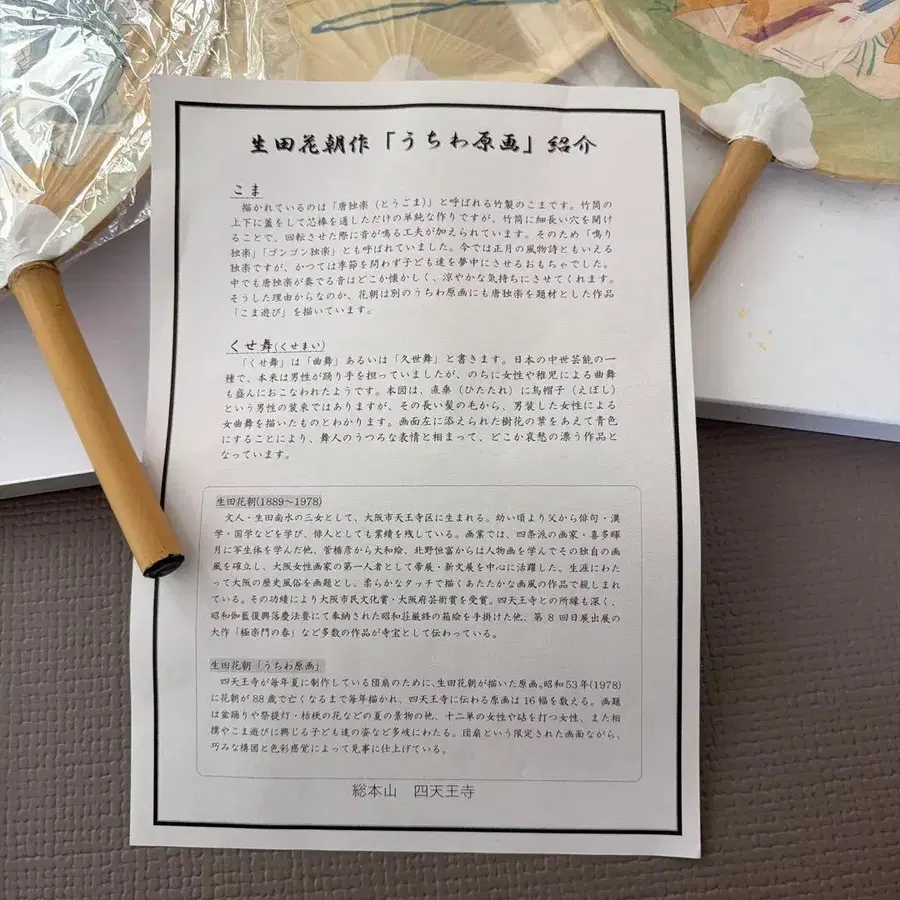 生田花朝作「うちわ原画」紹介
こま
描かれているのは「唐独楽（とうごま）」と呼ばれる竹製のこまです。竹筒の
上下に蓋をして芯棒を通しただけの単純な作りですが、竹筒に細長い穴を開け
ることで、回転させた際に音が鳴る工夫が加えられています。そのため「鳴り
独楽」「ゴンゴン独楽」とも呼ばれていました。今では正月の風物詩ともいえる
独楽ですが、かつては季節を問わず子ども達を夢中にさせるおもちゃでした。
中でも唐独楽が奏でる音はどこか懐かしく、涼やかな気持ちにさせてくれます。
そうした理由からなのか、花朝は別のうちわ原画にも唐独楽を題材とした作品
「こま遊び」を描いています。
くせ舞(くせまい)
「くせ舞」は「曲舞」あるいは「久世舞」と書きます。日本の中世芸能の一
種で、本来は男性が踊り手を担っていましたが、のちに女性や稚児による曲舞
も盛んにおこなわれたようです。本図は、直垂（ひたたれ）に烏帽子（えぼし）
という男性の装束ではありますが、その長い髪の毛から、男装した女性による
女曲舞を描いたものとわかります。画面左に添えられた樹花の葉をあえて青色
にすることにより、舞人のうつろな表情と相まって、どこか哀愁の漂う作品と
なっています。
生田花朝(1889～1978)
文人・生田南水の三女として、大阪市天王寺区に生まれる。幼い頃より父から俳句・漢
学・国学などを学び、俳人としても業績を残している。画業では、四条派の画家・喜多暉
月に写生体を学んだ他、菅楯彦から大和絵、北野恒富からは人物画を学んでその独自の画
風を確立し、大阪女性画家の第一人者として帝展・新文展を中心に活躍した。生涯にわた
って大阪の歴史風俗を画題とし、柔らかなタッチで描くあたたかな画風の作品で親しまれ
ている。その功績により大阪市民文化賞・大阪府芸術賞を受賞。四天王寺との所縁も深く、
昭和伽藍復興落慶法要にて奉納された昭和荘厳経の箱絵を手掛けた他、第8回日展出展の
大作「極楽門の春」など多数の作品が寺宝として伝わっている。
生田花朝「うちわ原画」
四天王寺が毎年夏に制作している団扇のために、生田花朝が描いた原画。昭和53年(1978)
に花朝が88歳で亡くなるまで毎年描かれ、四天王寺に伝わる原画は16幅を数える。画題
は盆踊りや祭提灯・桔梗の花などの夏の景物の他、十二単の女性や砧を打つ女性、また相
撲やこま遊びに興じる子ども達の姿など多岐にわたる。団扇という限定された画面ながら、
巧みな構図と色彩感覚によって見事に仕上げている。
総本山　四天王寺